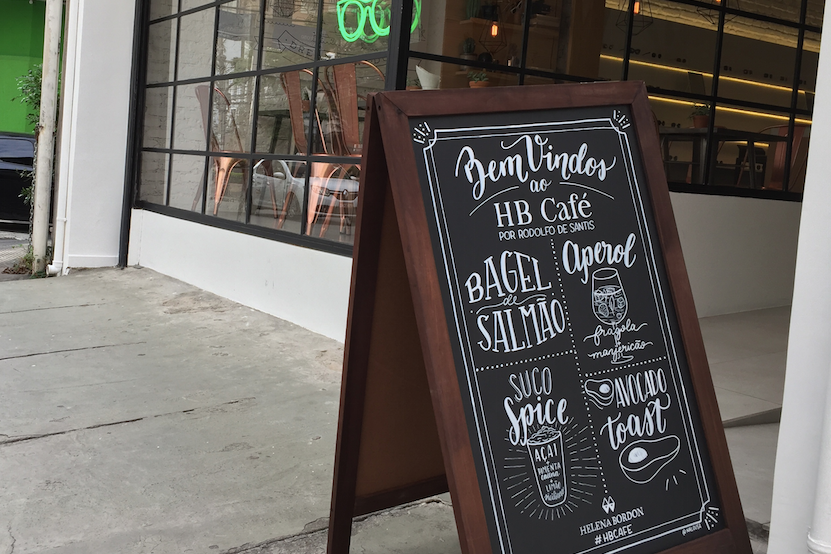 Bem Vindos
ao
HB Café
POR RODOLFO DE SANTIS
BAGEL
de
SALMÃO
Aperol
fragola
manjericão
SUCO
Spice
AÇAÍ
+
PIMENTA
+
LIMÃO
+
AVOCADO
toast
HELENA BORDON
#HBCAFE